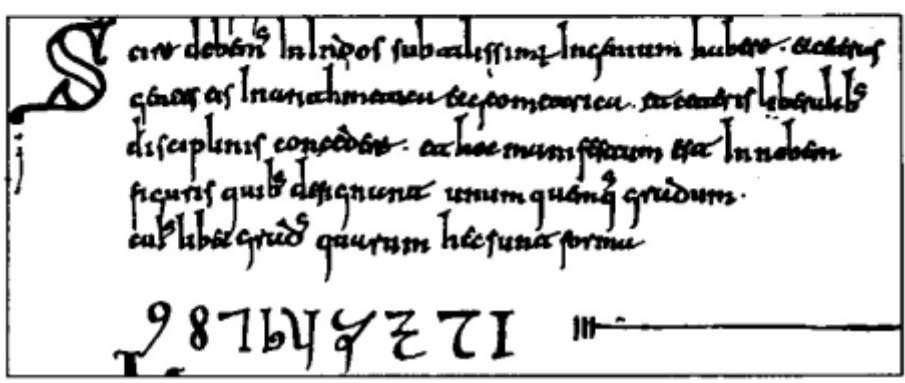 Scire debem᾽ In Indos subtilissimum Ingenium habere. et ceteras
gentes eis In arithmetica et geometrica. et ceteris liberalib᾽
disciplinis concedere. et hoc manifestum est In nobem
figuris quib᾽ designant unum quemq᾽ gradum.
cui᾽libet grad᾽ quarum hec sunt forma
9 8 7 6 5 4 3 2 1